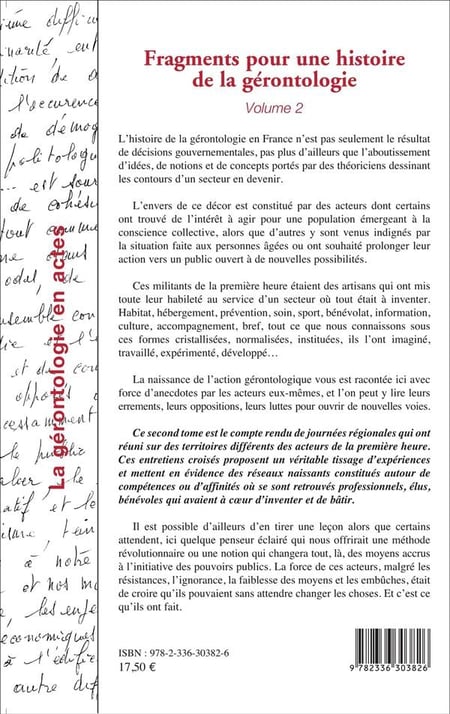 Fragments pour une histoire
de la gérontologie
Volume 2
L'histoire de la gérontologie en France n'est pas seulement le résultat
de décisions gouvernementales, pas plus d'ailleurs que l'aboutissement
d'idées, de notions et de concepts portés par des théoriciens dessinant
les contours d'un secteur en devenir.
L'envers de ce décor est constitué par des acteurs dont certains
ont trouvé de l'intérêt à agir pour une population émergeant à la
conscience collective, alors que d'autres y sont venus indignés par
la situation faite aux personnes âgées ou ont souhaité prolonger leur
action vers un public ouvert à de nouvelles possibilités.
Ces militants de la première heure étaient des artisans qui ont mis
toute leur habileté au service d'un secteur où tout était à inventer.
Habitat, hébergement, prévention, soin, sport, bénévolat, information,
culture, accompagnement, bref, tout ce que nous connaissons sous
ces formes cristallisées, normalisées, instituées, ils l'ont imaginé,
travaillé, expérimenté, développé…
La naissance de l'action gérontologique vous est racontée ici avec
force d'anecdotes par les acteurs eux-mêmes, et l'on peut y lire leurs
errements, leurs oppositions, leurs luttes pour ouvrir de nouvelles voies.
Ce second tome est le compte rendu de journées régionales qui ont
réuni sur des territoires différents des acteurs de la première heure.
Ces entretiens croisés proposent un véritable tissage d'expériences
et mettent en évidence des réseaux naissants constitués autour de
compétences ou d'affinités où se sont retrouvés professionnels, élus,
bénévoles qui avaient à cœur d'inventer et de bâtir.
Il est possible d'ailleurs d'en tirer une leçon alors que certains
attendent, ici quelque penseur éclairé qui nous offrirait une méthode
révolutionnaire ou une notion qui changera tout, là, des moyens accrus
à l'initiative des pouvoirs publics. La force de ces acteurs, malgré les
résistances, l'ignorance, la faiblesse des moyens et les embûches, était
de croire qu'ils pouvaient sans attendre changer les choses. Et c'est ce
qu'ils ont fait.
ISBN : 978-2-336-30382-6
17,50 €
9 782336 303826
La gérontologie en actes
l'occurence
de démog
politologu
est sour
de cohés
tout comme
semble con
et d
le public
et le
à notre
et nos m
les enje
economiques
à l'édifi
autre dif